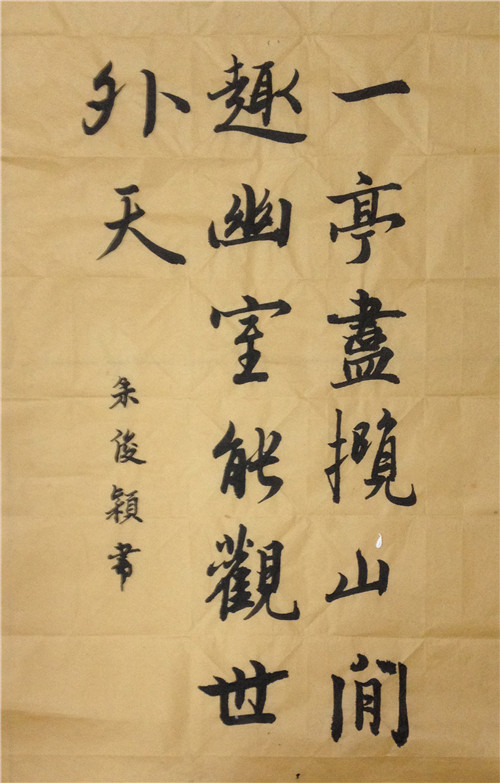 一亭盡攬山間
趣幽室能觀世
外天
朱俊穎書